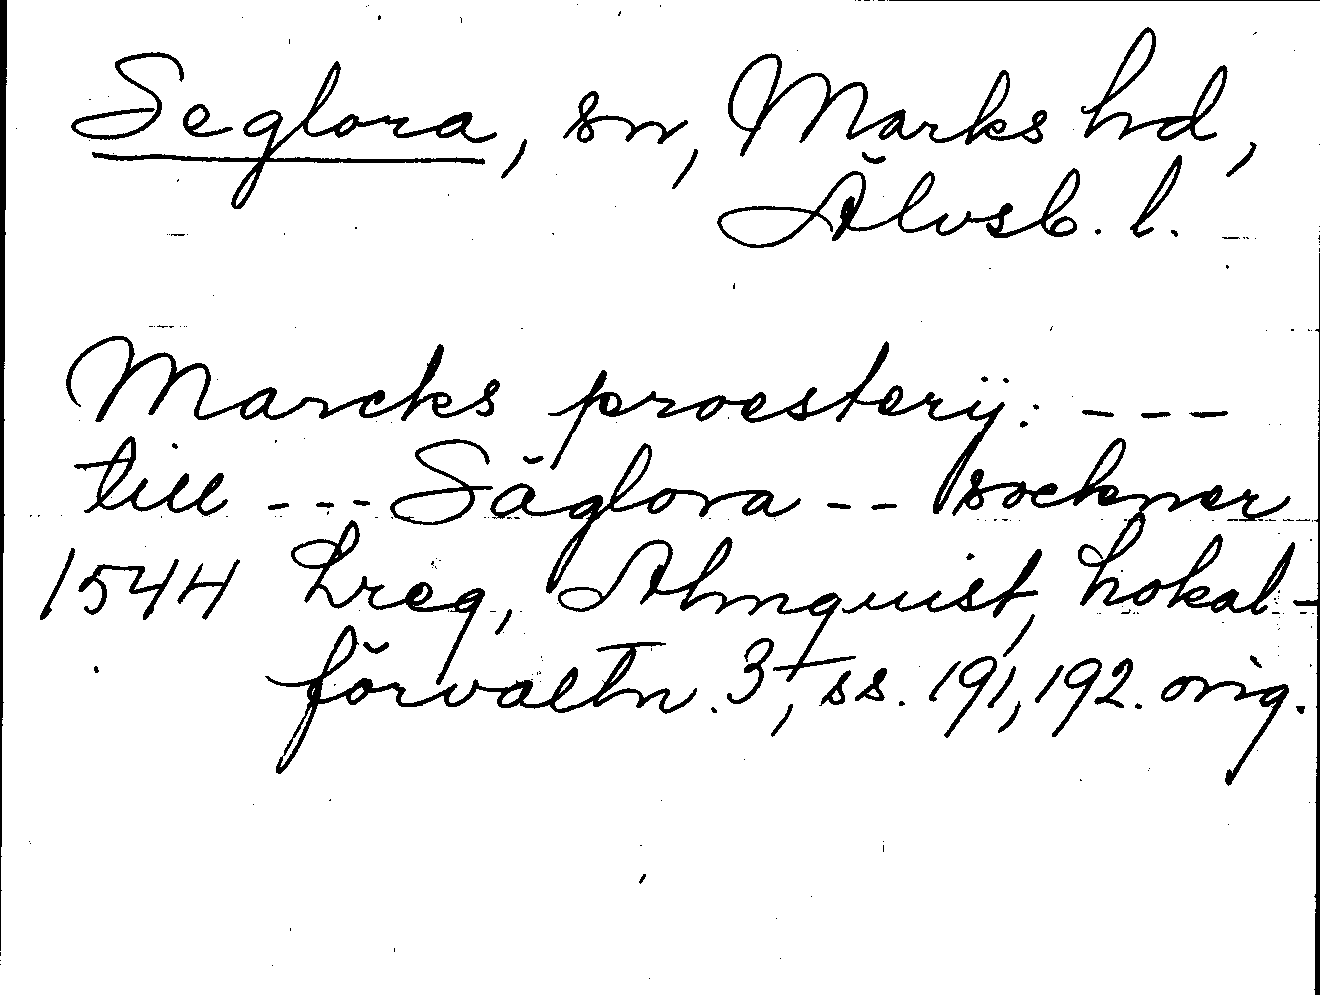 Seglora, sn, Marks hd,
Älvsb. l.
Marcks proesterij: ---
till --- Säglora -- sockner
1544 Lreg, Almquist, Lokal-
förvaltn. 3, ss. 191, 192. orig.